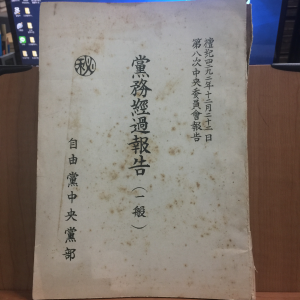 檀紀四二九二年十二月二十二日
第八次中央委員會報告
秘
黨務經過報告(一般)
自由黨中央黨部